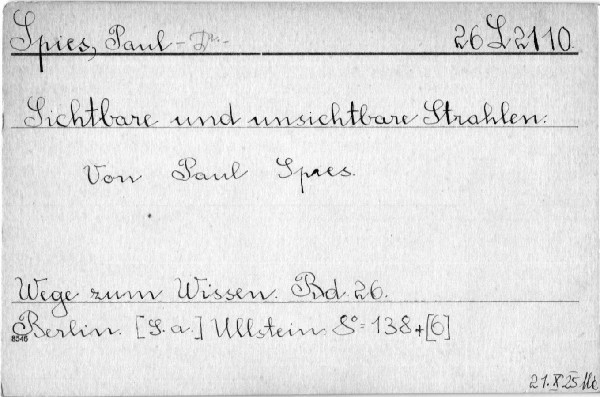 Spies, Paul - Dr. - 26 L 2110
Sichtbare und unsichtbare Strahlen.
Von Paul Spies.
Wege zum Wissen. Bd. 26.
Berlin. [S. a.] Ullstein 8° = 138 + [6]
8546
21. X 25